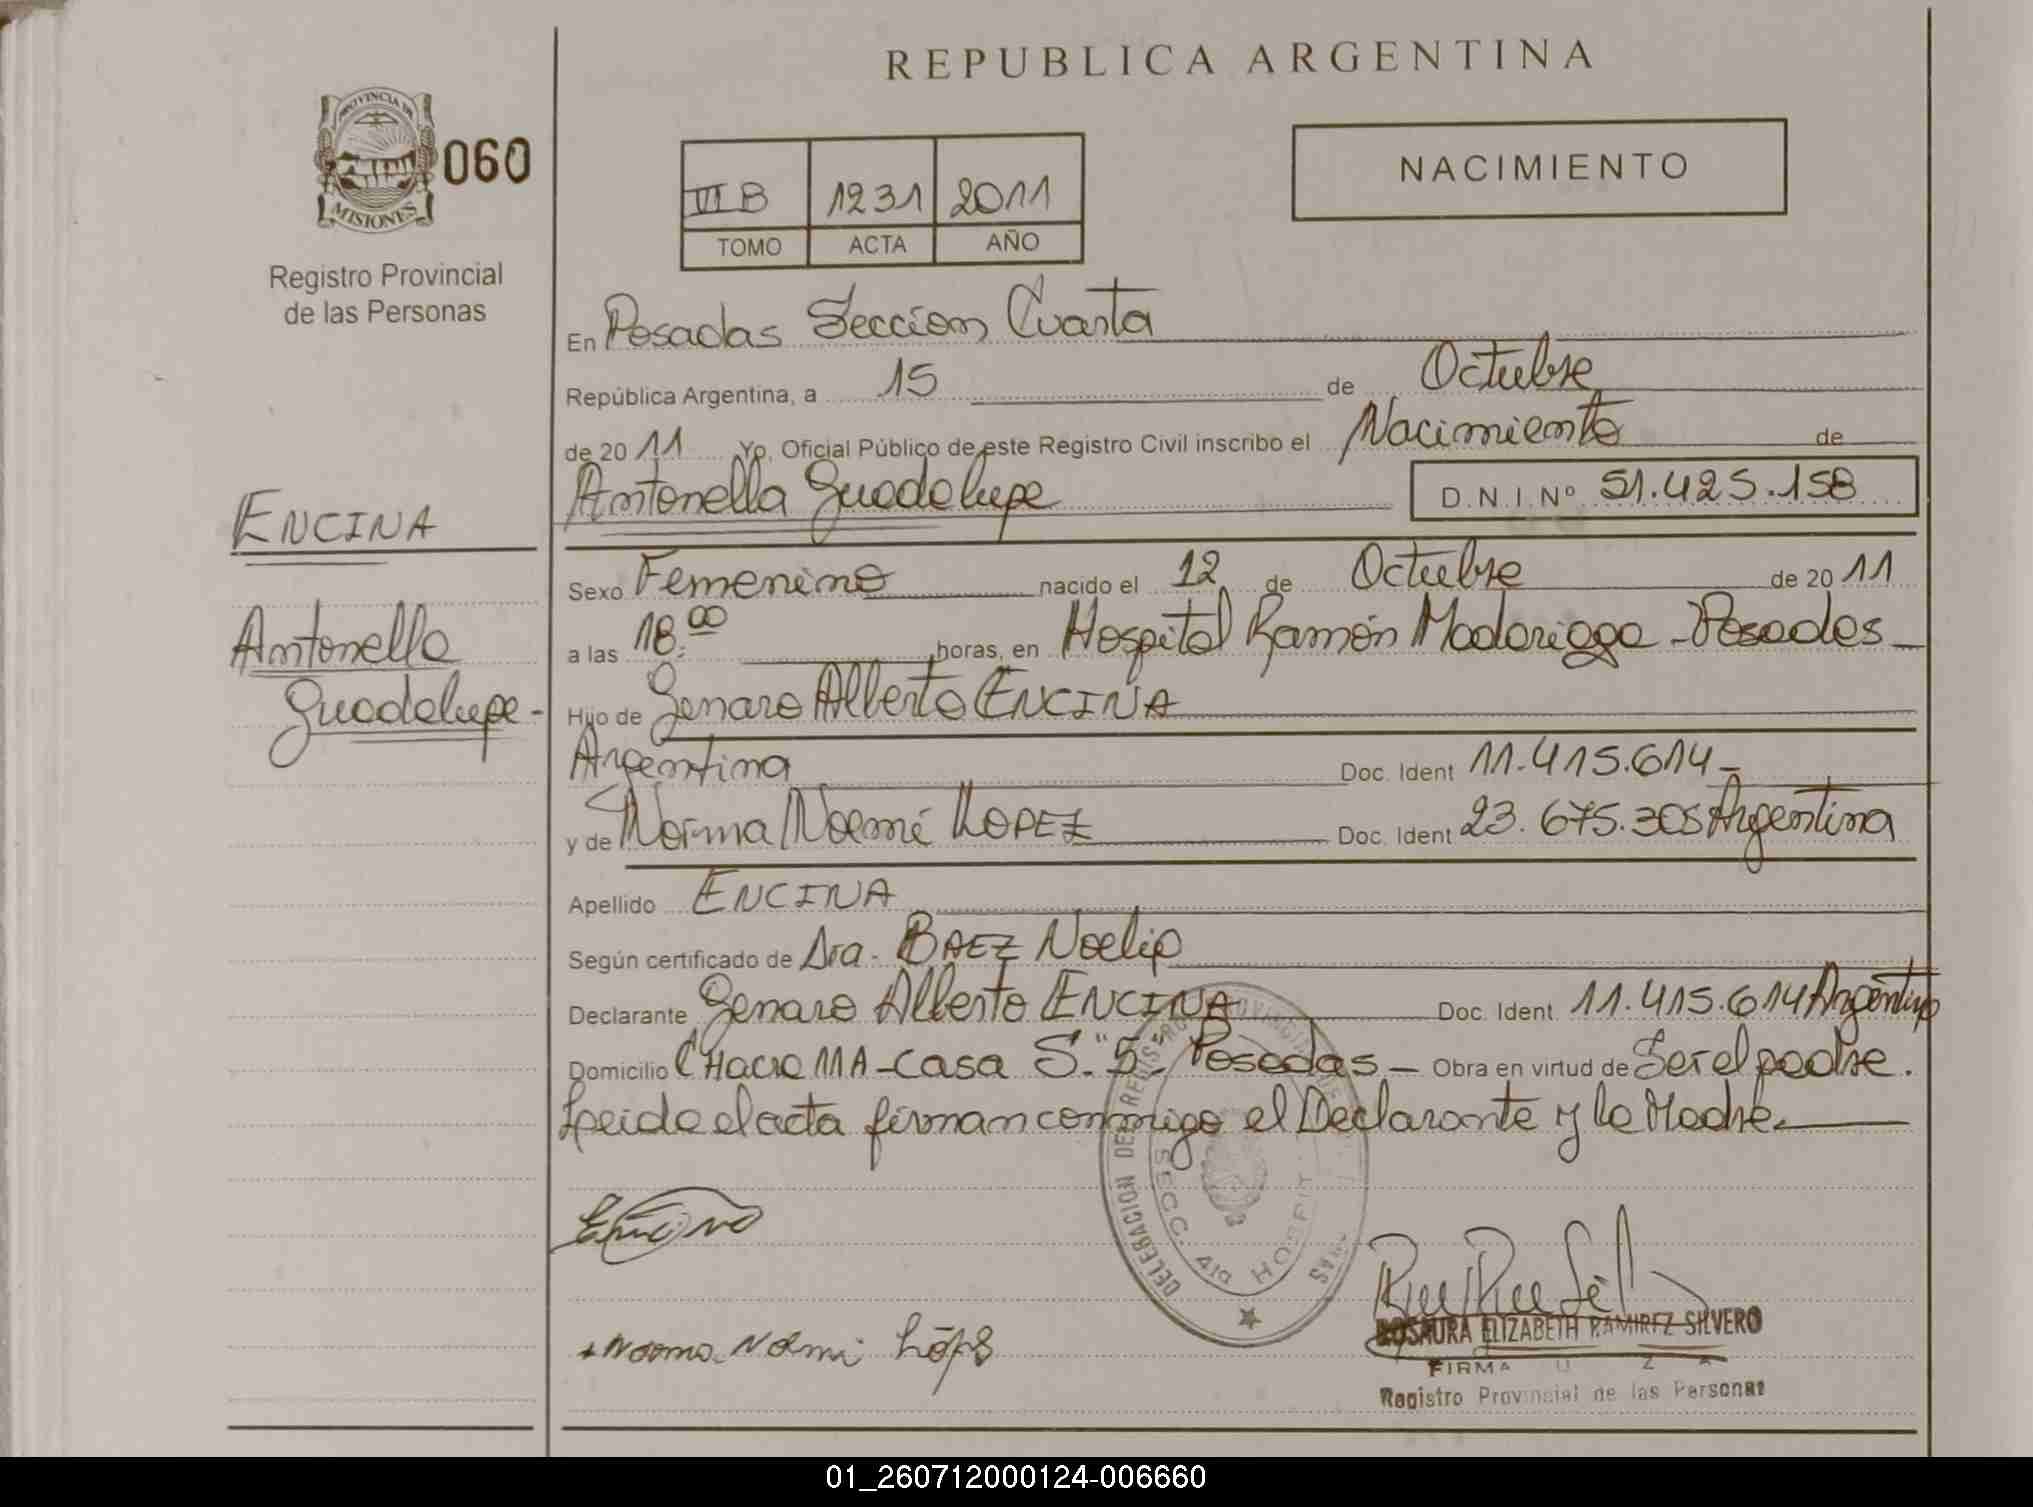 REPUBLICA ARGENTINA
PROVINCIA DE
MISIONES
060
Registro Provincial
de las Personas
VI B 1231 2011
TOMO ACTA AÑO
NACIMIENTO
En Posadas Seccion Cuarta
República Argentina, a 15 de Octubre
de 20 11 Yo, Oficial Público de este Registro Civil inscribo el Nacimiento de
Antonella Guadelupe D.N.I. Nº 51.425.158
ENCINA
Antonella
Guadelupe-
Sexo Femenino nacido el 12 de Octubre de 20 11
a las 18:00 horas, en Hospital Ramón Madariaga - Posadas
Hijo de Genaro Alberto ENCINA
Argentina Doc. Ident 11.415.614-
y de Norma Noemí LOPEZ Doc. Ident 23.675.305 Argentina
Apellido ENCINA
Según certificado de Dra. BAEZ Noelia
Declarante Genaro Alberto ENCINA Doc. Ident 11.415.614 Argentino
Domicilio CHacra 11A-Casa S."5" Posadas - Obra en virtud de Ser el padre.
Leida el acta firman conmigo el Declarante y la Madre.
DELEGACION DEL REGISTRO PROVINCIAL DE LAS
SECC. 4ta HOSPIT.
Encina
Norma Noemi López
ROSAURA ELIZABETH RAMIREZ SILVERO
FIRMA
Registro Provincial de las Personas
01_260712000124-006660